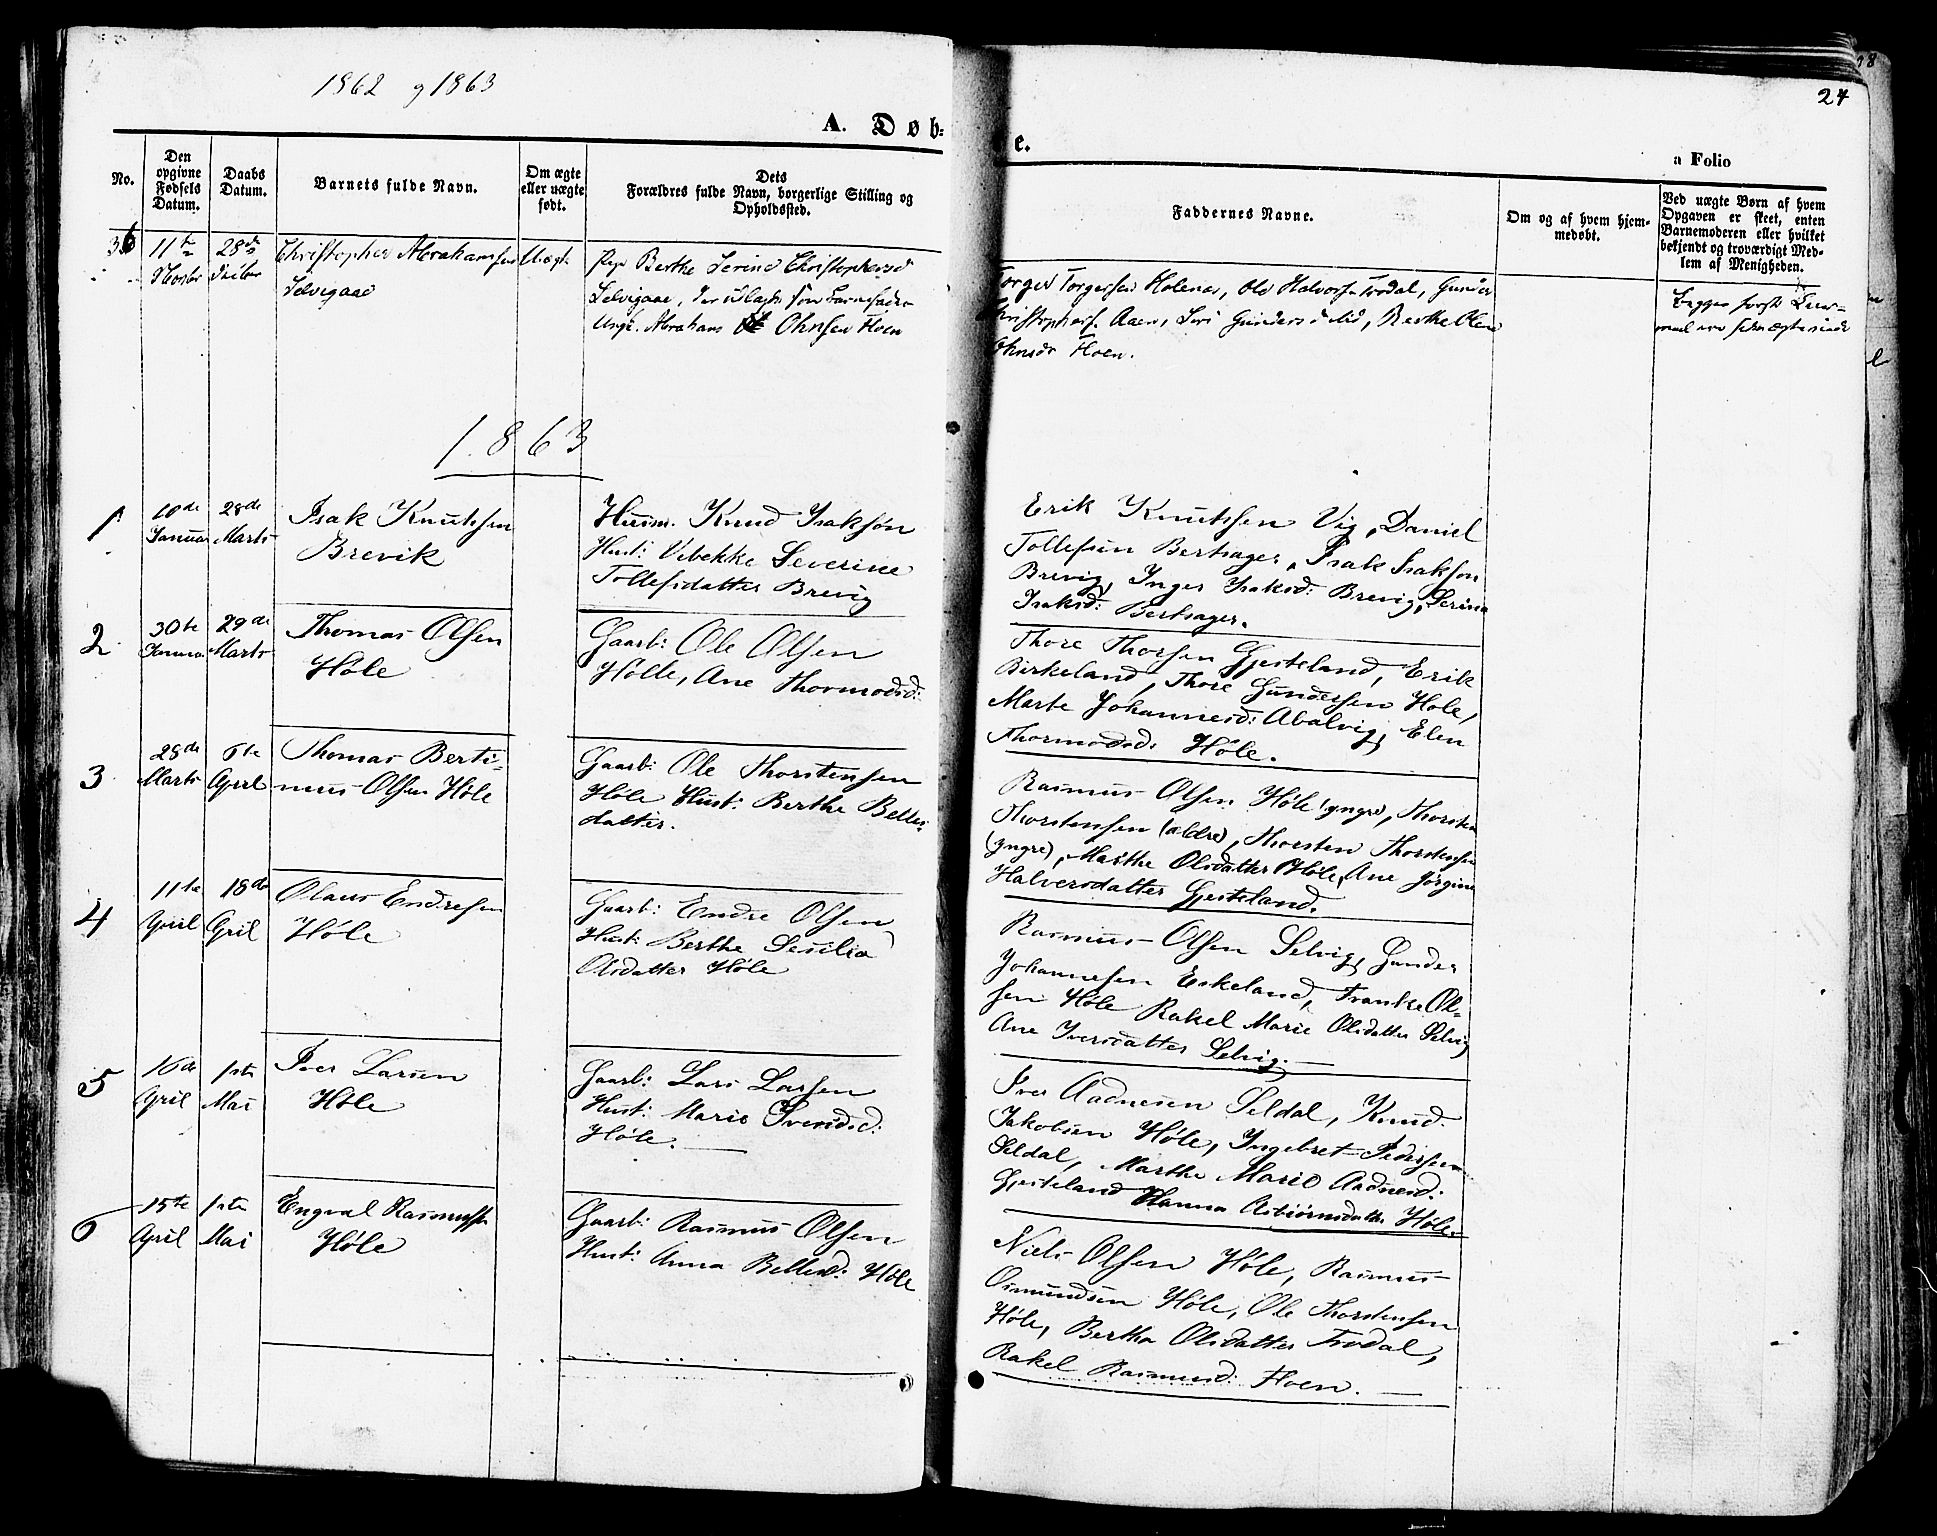 1862 g 1863
24
A. Døb=
e.
a Folio
No.
Den opgivne Fødsels Datum.
Daabs Datum.
Barnets fulde Navn.
Om ægte eller uægte født.
Dets Forældres fulde Navn, borgerlige Stilling og Opholdssted.
Faddernes Navne.
Om og af hvem hjem-
medøbt.
Ved uægte Børn af hvem
Opgaven er skeet, enten
Barnemoderen eller hvilket
bekjendt og troværdigt Med-
lem af Menigheden.
36
11te
28de
Christopher Abrahamsen
Selvigaae
Uægt.
Pige Berthe Serine Christophersd
Selvigaae,
Ungk. Abraham Ohnsen Hoen
Torger Torgersen Holenes, Ole Halvors. Frodal, Gunder
Christophers. Aaen, Siri Gundersd Lid, Berthe Olene
Ohnsdr Hoen.
Begges første
1863
1
10de Januar
28de Marts
Isak Knutsen
Brevik
Huusm. Knud Isaksøn
Hust: Vibekke Severine
Tollefsdatter Brevig
Erik Knutssen Vig, Daniel
Tollefsen Bertsager, Isak Isaksøn
Brevig, Inger Isaksd: Brevig, Serina
Isaksd: Bertsager.
2
30te Januar
29de Marts
Thomas Olsen
Høle
Gaarb: Ole Olsen
Hølle, Ane Thormodsd:
Thore Thorsen Gjesteland, Erik
Birkeland, Thore Gundersen Høle,
Marte Johannesd: Abalvig, Elen
Thormodsd: Høle.
3
28de Marts
6te April
Thomas Berti-
nius Olsen Høle
Gaarb: Ole Thorstensen
Høle Hust: Berthe Belles
datter.
Rasmus Olsen Høle (yngre), Thorsten
Thorstensen (ældre), Thorsten Thorstensen
(yngre), Marthe Olsdatter Høle, Ane Jørgine
Halversdatter Gjesteland.
4
11te April
18de April
Olaus Endresen
Høle
Gaarb: Endre Olsen
Hust: Berthe Sesilia
Olsdatter Høle
Rasmus Olsen Selvig, Gunder
Johannesen Eskeland, Franke Ol=
sen Høle Rakel Marie Olsdatter Selvig
Ane Iversdatter Selvig.
5
16de April
1ste Mai
Iver Larsen
Høle
Gaarb: Lars Larsen
Hust: Marie Iversd:
Høle.
Iver Aadnesen Seldal, Knud
Jakobsen Høle, Ingebret Pedersen
Seldal, Marthe Marie Aadnesd:
Gjesteland Hanna Asbiørnsdatter Høle.
6
15te April
1ste Mai
Engval Rasmussen
Høle
Gaarb: Rasmus Olsen
Hust: Anna Bellesd: Høle
Niels Olsen Høle, Rasmus
Osmundsen Høle, Ole Thorstensen
Høle, Bertha Olsdatter Frodal,
Rakel Rasmusd: Hoen.